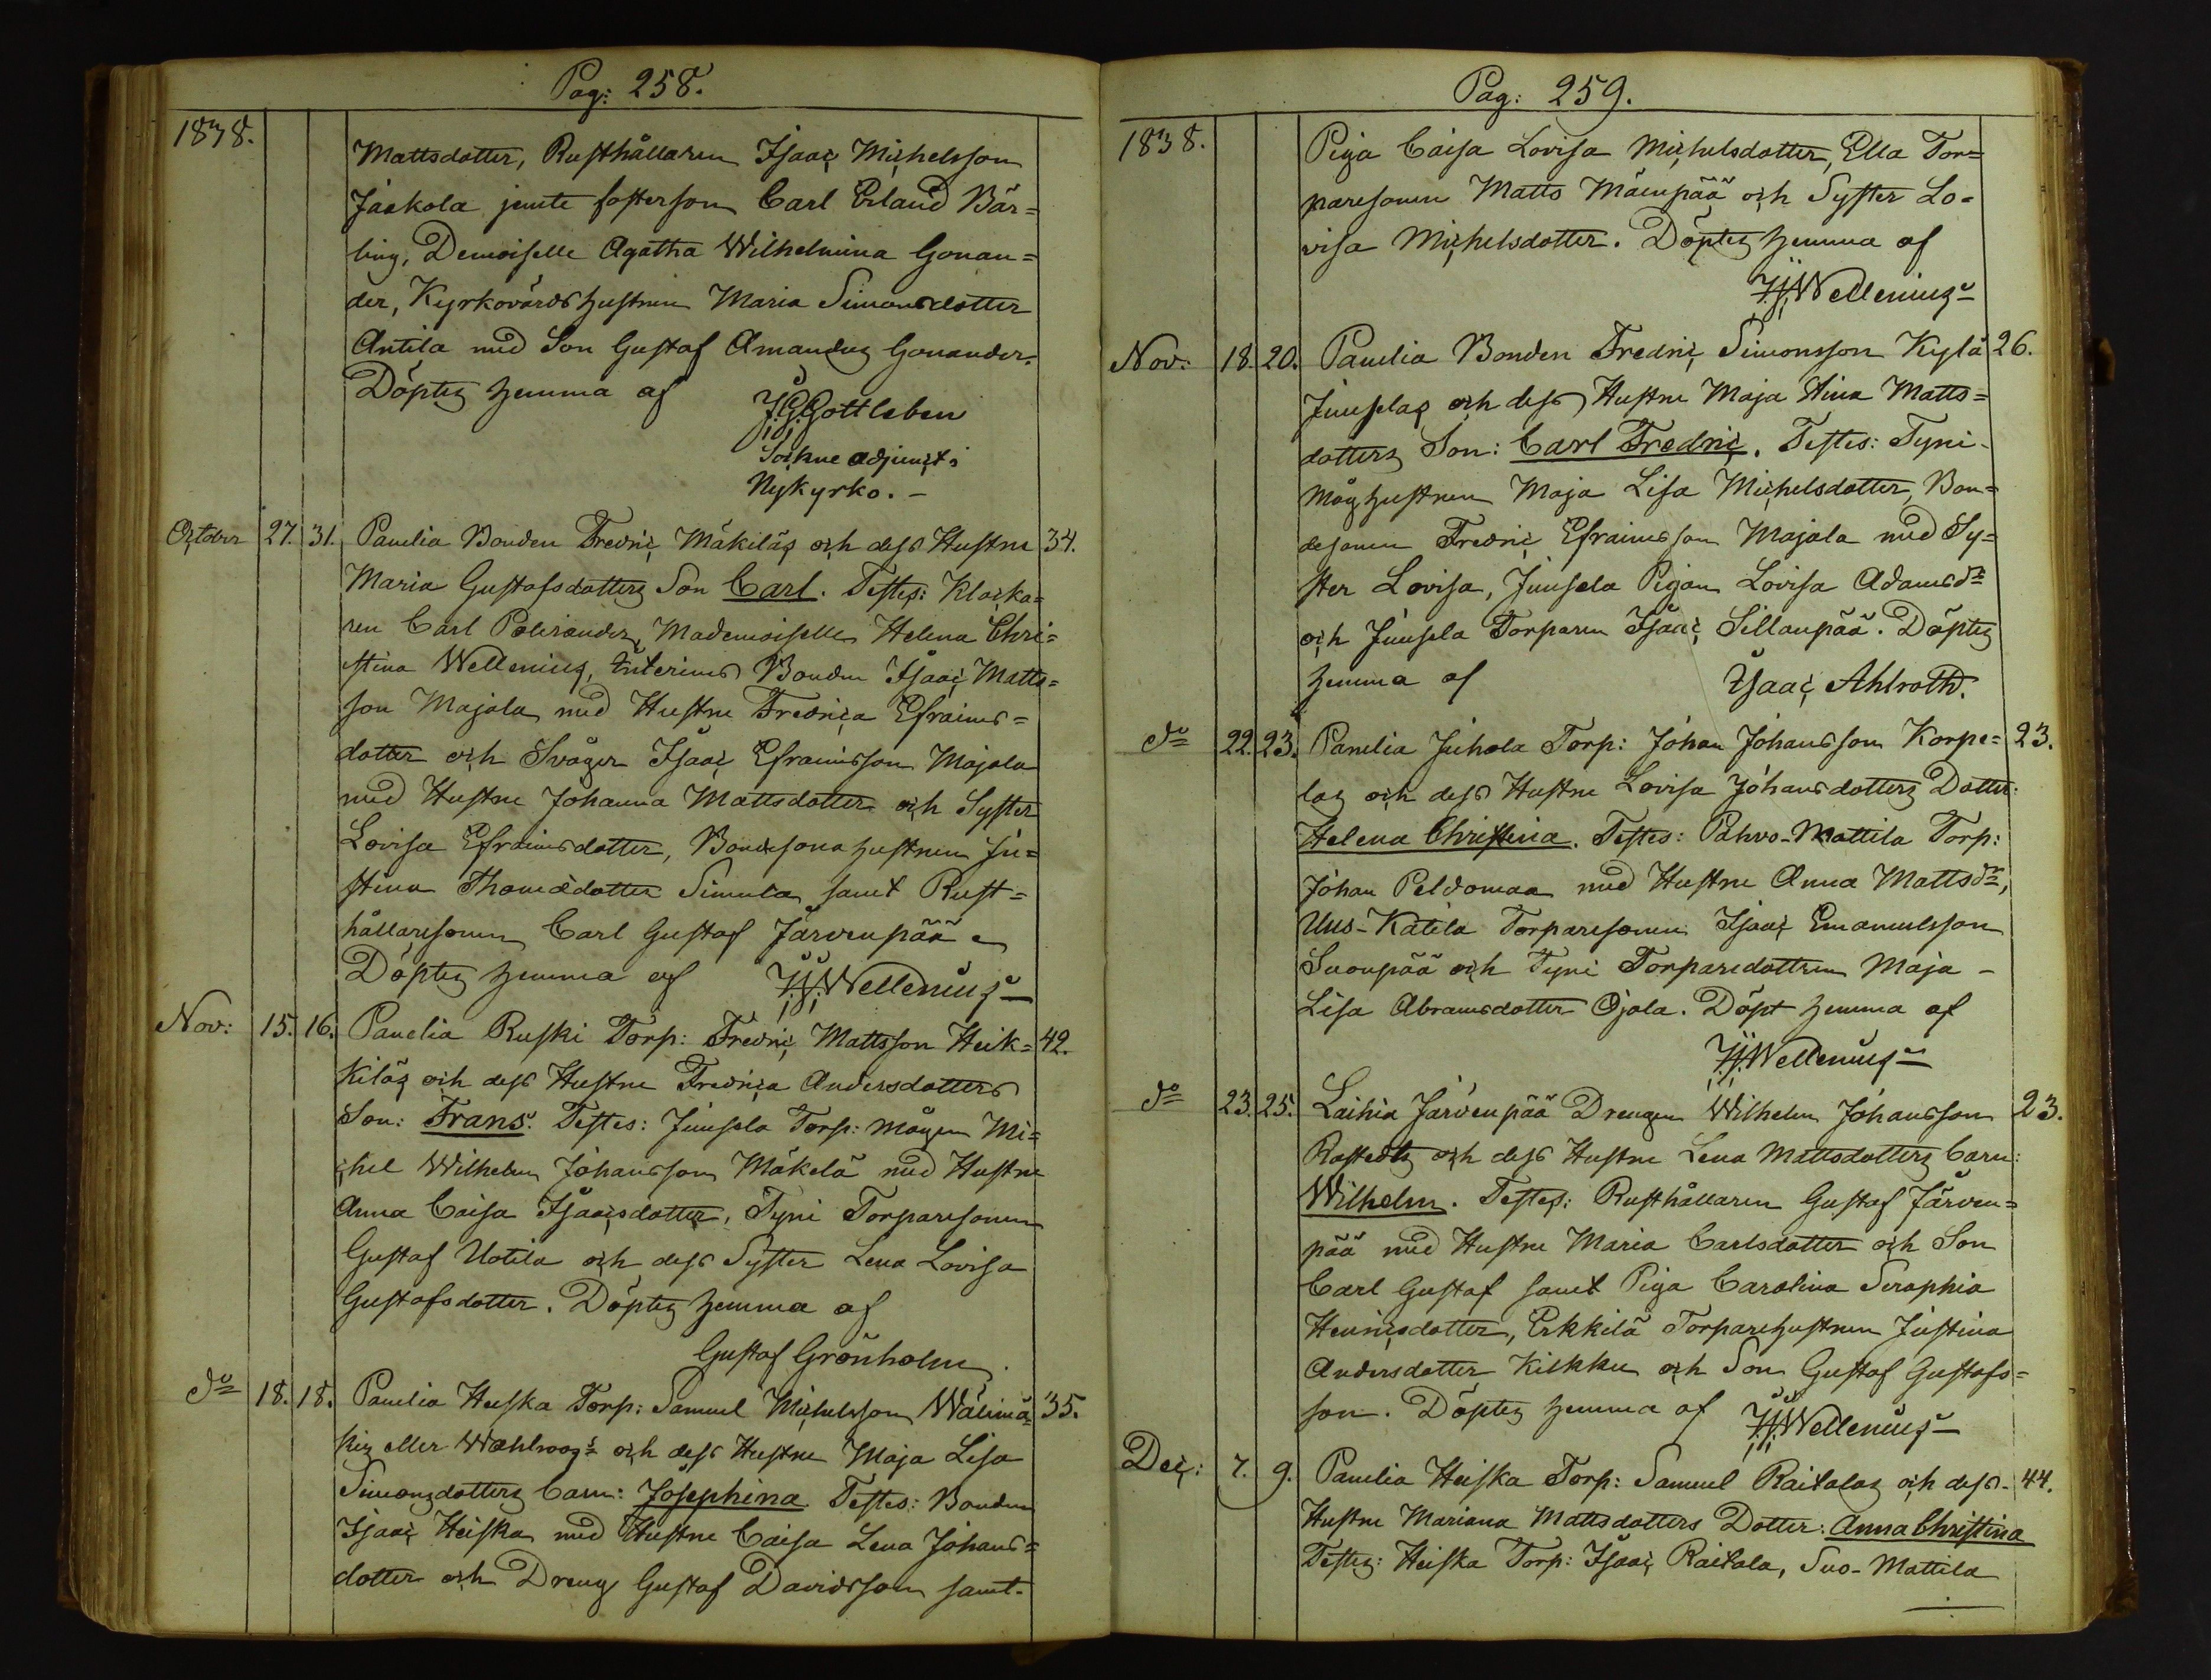 Pag: 258.
1838.
Mattsdotter, Rusthållaren Isaac Michelsson
Jaakola jemte fosterson Carl Erland Bär=
ling, Demoiselle Agatha Wilhelmina Gonan=
der, Kyrkovärds hustrun Maria Simonsdotter
Antila med Son Gustaf Amandus Gonander.
Döptes hemma af
J.G.Gottleben
Sockne adjunct i
Nykyrko. -
October 27. 31. Panelia Bonden Fredric Mäkiläs och dess Hustru 34.
Maria Gustafsdotters Son Carl. Testes: Klocka=
ren Carl Polviander, Mademoiselle Helena Chri=
stina Wellenius, Interims Bonden Isaac Matts=
son Majala med Hustru Fredrica Efraims=
dotter och Svåger Isaac Efraimsson Majala
med Hustru Johanna Mattsdotter och Syster
Lovisa Efraimsdotter, Bondesona hustrun Ju=
stina Thomædotter Simula samt Rust=
hållaresonen Carl Gustaf Järvenpää
Döptes hemma af W.Wellenius
Nov: 15. 16. Panelia Ruski Torp: Fredric Mattsson Heik= 42.
kiläs och dess Hustru Fredrica Andersdotters
Son: Frans. Testes: Juusela Torp: mågen Mi=
chel Wilhelm Johansson Mäkelä med Hustru
Anna Caisa Isaacsdotter, Tyni Torparesonen
Gustaf Uotila och dess Syster Lena Lovisa
Gustafsdotter. Döptes hemma af
Gustaf Grönholm.
do 18. 18. Panelia Heiska Torp: Samuel Michelsson Wälimä= 35.
kis eller Wahlroos och dess Hustru Maja Lisa
Simonsdotters barn: Josephina Testes: Bonden
Isaac Heiska med Hustru Caisa Lena Johans=
dotter och Dreng Gustaf Davidsson samt-
Pag: 259.
1838.
Piga Caisa Lovisa Michelsdotter, Ella Tor=
paresonen Matts Mäenpää och Syster Lo=
visa Michelsdotter. Döptes hemma af
W.Wellenius
Nov: 18. 20. Panelia Bonden Fredric Simonsson Kylä 26.
Juuselas och dess Hustru Maja Stina Matts=
dotters Son: Carl Fredric. Testes: Tyni-
måg hustrun Maja Lisa Michelsdotter, Bon=
desonen Fredric Efraimsson Majala med Sy=
ster Lovisa, Juusela Pigan Lovisa Adamsdr
och Juusela Torparen Isaac Sillanpää. Döptes
hemma af Isaac Ahlroth.
do 22. 23. Panelia Juhola Torp: Johan Johansson Korpe= 23.
las och dess Hustru Lovisa Johansdotters Dotter:
Helena Christina. Testes: Pahvo-Mattila Torp:
Johan Peldomaa med Hustru Anna Mattsdr,
Uus-Katila Torparesonen Isaac Emanuelsson
Suonpää och Tyni Torparedottren Maja -
Lisa Abramsdotter Ojala. Döpt hemma af
W.Wellenius
do 23. 25. Laihia Järvenpää Drengen Wilhelm Johansson 23.
Rostedts och dess Hustru Lena Mattsdotters barn:
Wilhelm. Testes: Rusthållaren Gustaf Järven=
pää med Hustru Maria Carlsdotter och Son
Carl Gustaf samt Piga Carolina Seraphia
Henricsdotter, Erkkilä Torparehustrun Justina
Andersdotter Kilkku och Son Gustaf Gustafs=
son. Döptes hemma af W.Wellenius
Dec: 7. 9. Panelia Heiska Torp: Samuel Raitalas och dess- 44.
Hustru Mariana Mattsdotters Dotter: Anna Christina
Testes: Heiska Torp: Isaac Raitala, Suo-Mattila